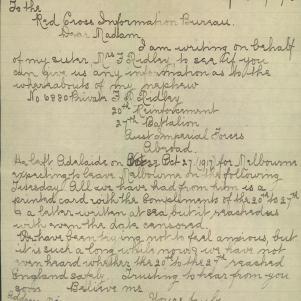 To the
Red Cross Information Bureau.
Dear Madam
I am writing on behalf
of my sister Mrs F Ridley to see if you
can give us any information as to the
whereabouts of my nephew
No 6880 Private F Ridley
20th Reinforcement
27th Battalion
Aust Imperial Forces
Abroad.
He left Adelaide on Oct 27 (1917) for Melbourne
expecting to leave Melbourne on the following
Tuesday. All we have had from him is a
printed card with the compliments of the 20th to 27th
& a letter written at sea but it reached us
with even the date censored.
We have been trying not to feel anxious, but
it is such a long while now & we have not
even heard whether the 20th to the 27th reached
England safely. Trusting to hear from you
soon Believe me
Yours truly